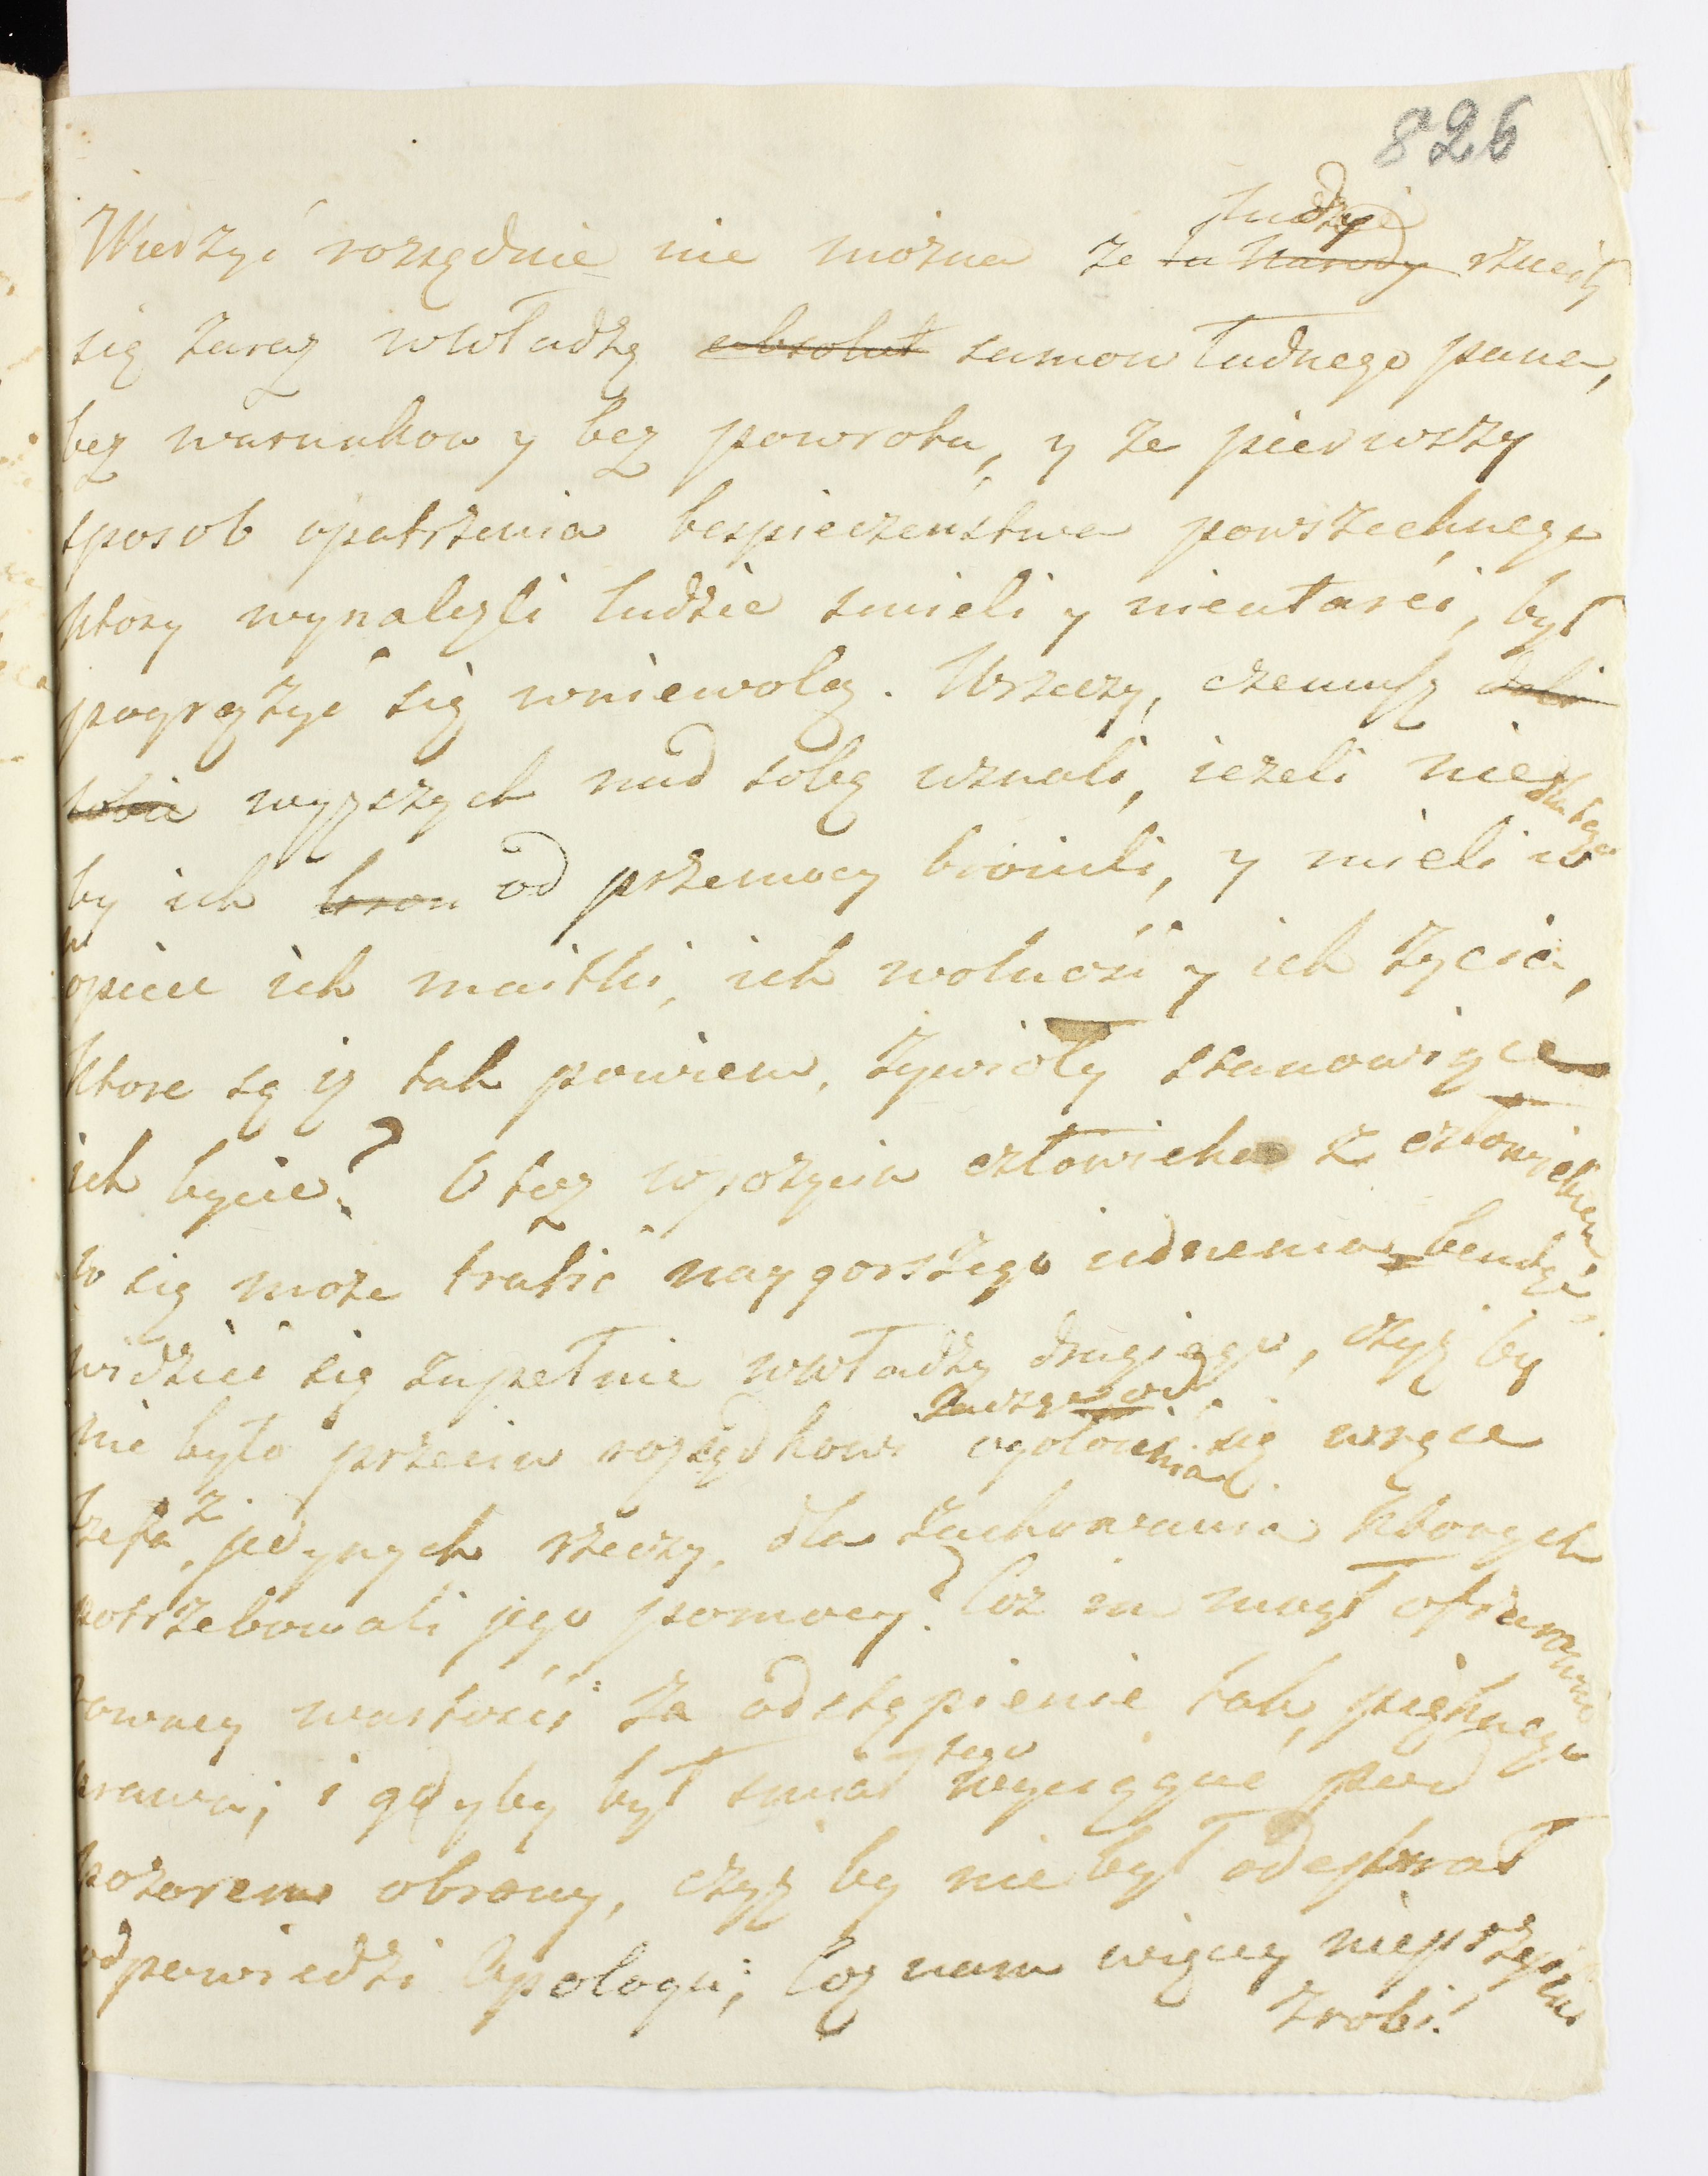 826
ludzie
Wierzyć rozsądnie nie można ze ta Narody rzucily
się zaraz wwładzą absolut samowładnego pana,
bez warunkow y bez powrotu, y ze pierwszy
sposob opatrzenia bespieczeństwa powszechnego
ktory wynalezli ludzie smieli y nieutarci, był
pogrążyć się wniewolą. Wrzeczy, czemusz dali
sobie wyzszych nad sobą uznali, iezeli nie dla tego
by ich bron od przemocy bronili, y mieli w
opiece ich maitki, ich wolność y ich życie,
ktore są iż tak powiem, żywioły stanowiące
ich bycie? Otoz wpożyciu człowieka z człowiekiem
co się może trafić naygorszego iednemu bendzi
widzieć się zupełnie wwładzy drugiego, czyż by
nie było przeciw rozsądkowi ogołocenia się wręce
szefa, z jedynych rzeczy, dla zachowania ktorych
potrzebowali jego pomocy? Coz im mogł ofiarować
rowney wartości za odstąpienie tak pięknego
prawa; i gdyby był smiał tego wyciągać pod
pozorem obrony, czyż by nie był odebrał
odpowiedzi Apologu; Coz nam więcey nieprzyiaciel
zrobi!